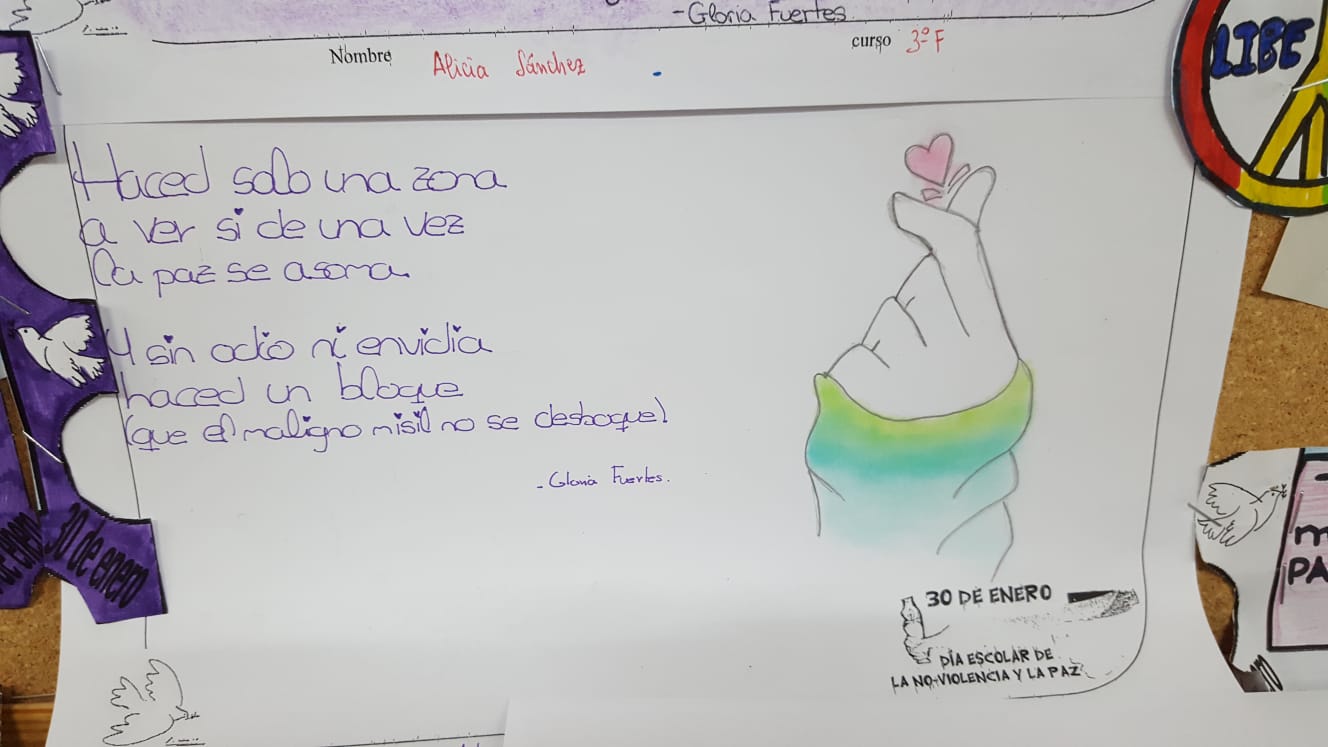 -Gloria Fuertes
Nombre Alicia Sánchez
curso 3º F
LIBE
Haced solo una zona
a ver si de una vez
la paz se asoma
Y sin odio ni envidia
haced un bloque
(que el maligno misil no se desboque)
- Gloria Fuertes.
de enero
30 de enero
m
PA
30 DE ENERO
DÍA ESCOLAR DE
LA NO-VIOLENCIA Y LA PAZ